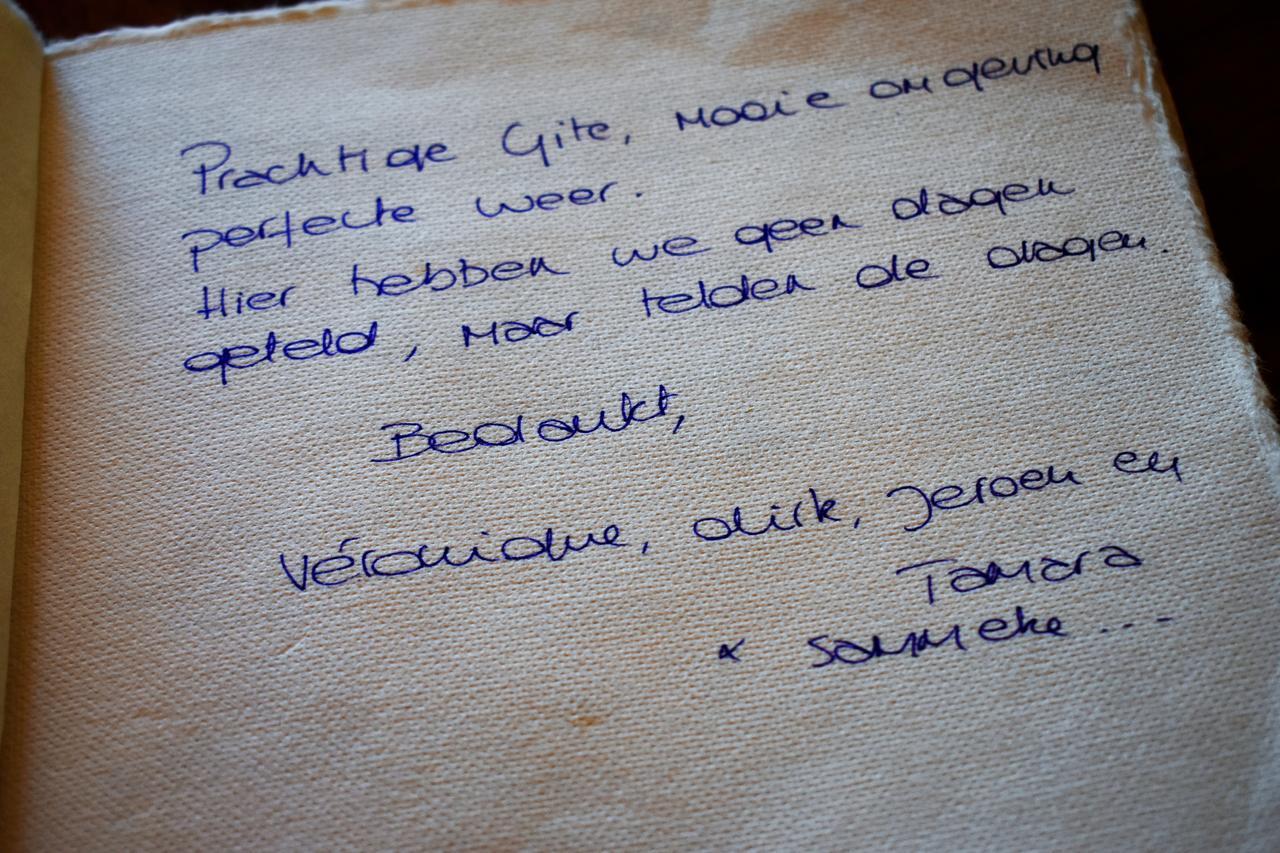 Prachtige Gite, mooie omgeving
perfecte weer.
Hier hebben we geen dagen
geteld, maar telden de dagen.
Bedankt,
Véronique, dirk, Jeroen en
Tamara
& Sammeke ...